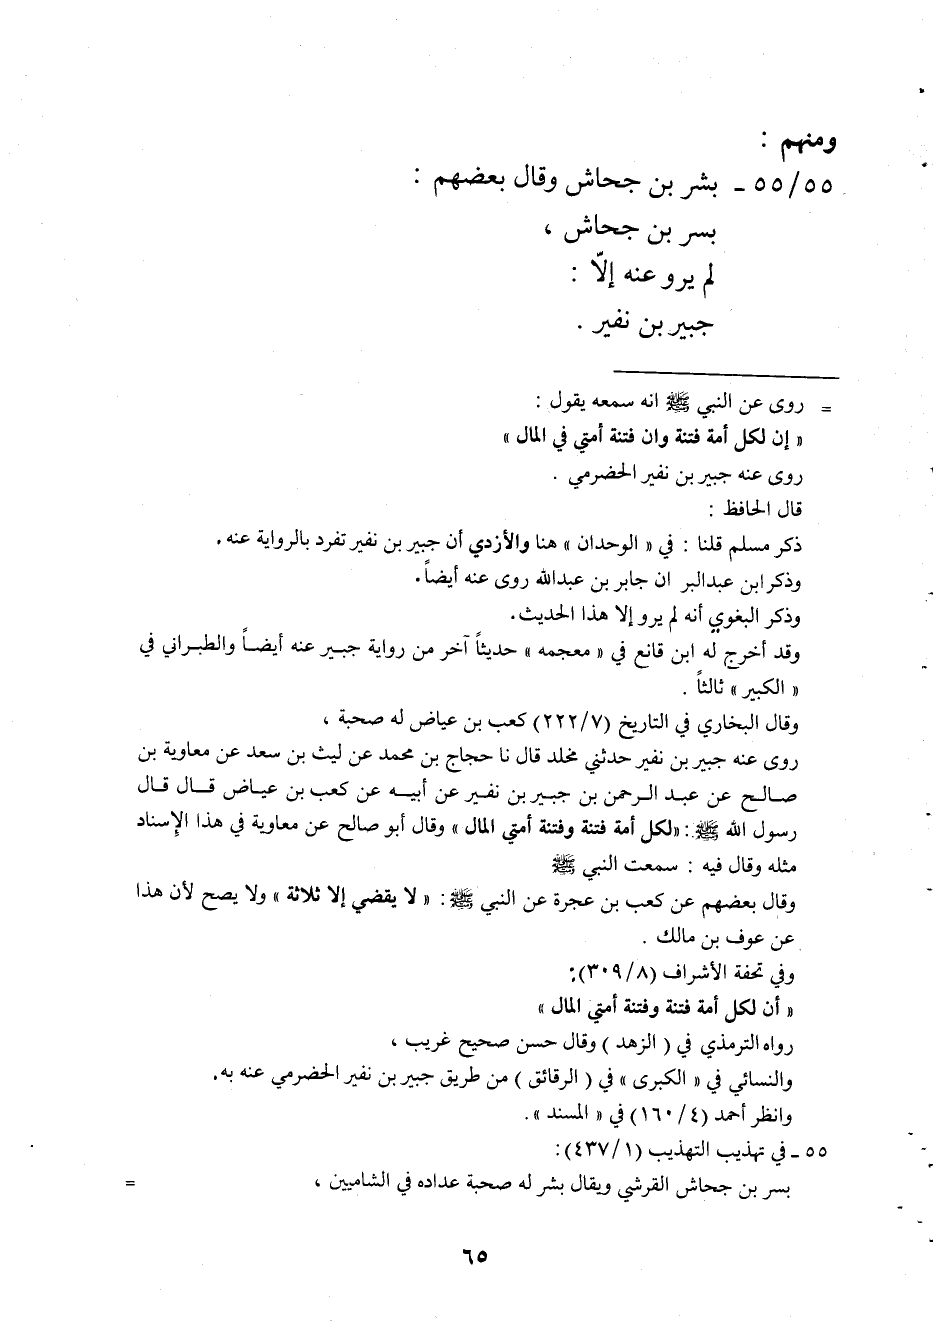 ومنهم :
٥٥/٥٥ ـ بشر بن جحاش وقال بعضهم :
بسر بن جحاش ،
لم يرو عنه إلاّ :
جبير بن نفير .
= روى عن النبي ﷺ انه سمعه يقول :
« إن لكل أمة فتنة وان فتنة أمتي في المال »
روى عنه جبير بن نفير الحضرمي .
قال الحافظ :
ذكر مسلم قلنا : في « الوحدان » هنا والأزدي أن جبير بن نفير تفرد بالرواية عنه .
وذكر ابن عبدالبر ان جابر بن عبدالله روى عنه أيضاً .
وذكر البغوي أنه لم يرو إلا هذا الحديث .
وقد أخرج له ابن قانع في « معجمه » حديثاً آخر من رواية جبير عنه أيضاً والطبراني في
« الكبير » ثالثاً .
وقال البخاري في التاريخ (٢٢٢/٧) كعب بن عياض له صحبة ،
روى عنه جبير بن نفير حدثني مخلد قال نا حجاج بن محمد عن ليث بن سعد عن معاوية بن
صالح عن عبد الرحمن بن جبير بن نفير عن أبيه عن كعب بن عياض قال قال
رسول الله ﷺ : «لكل أمة فتنة وفتنة أمتي المال » وقال أبو صالح عن معاوية في هذا الإسناد
مثله وقال فيه : سمعت النبي ﷺ
وقال بعضهم عن كعب بن عجرة عن النبي ﷺ : « لا يقضي إلا ثلاثة » ولا يصح لأن هذا
عن عوف بن مالك .
وفي تحفة الأشراف (٣٠٩/٨):
« أن لكل أمة فتنة وفتنة أمتي المال »
رواه الترمذي في ( الزهد ) وقال حسن صحيح غريب ،
والنسائي في « الكبرى » في ( الرقائق ) من طريق جبير بن نفير الحضرمي عنه به .
وانظر أحمد (١٦٠/٤) في « المسند » .
٥٥ ـ في تهذيب التهذيب (٤٣٧/١):
بسر بن جحاش القرشي ويقال بشر له صحبة عداده في الشاميين ، =
٦٥